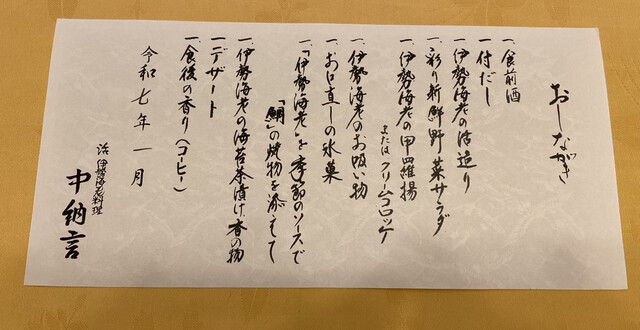 おしながき
一、食前酒
一、付だし
一、伊勢海老の活造り
一、彩り新鮮野菜サラダ
一、伊勢海老の甲羅揚
またはクリームコロッケ
一、伊勢海老のお吸い物
一、お口直しの氷菓
一、「伊勢海老」を季節のソースで
「鯛」の焼物を添えて
一、伊勢海老の海苔茶漬け、香の物
一、デザート
一、食後の香り(コーヒー)
令和七年一月
活伊勢海老料理
中納言